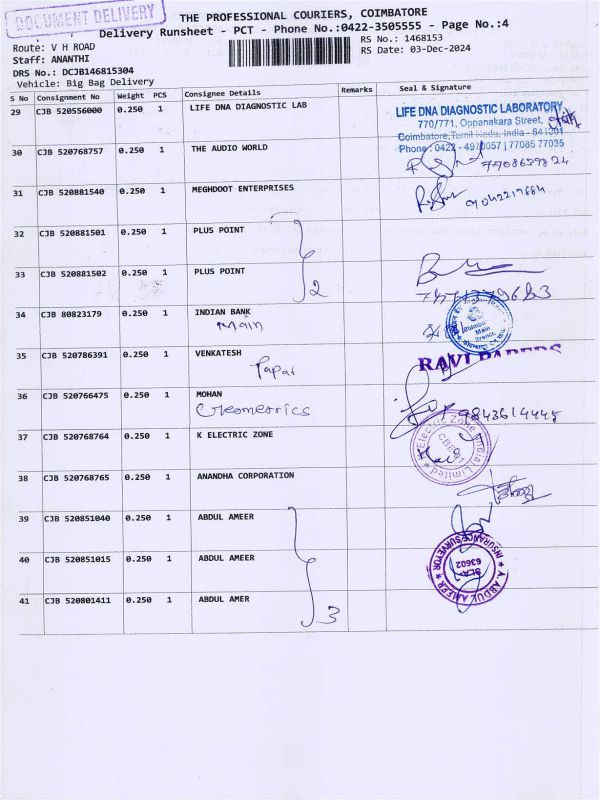 DOCUMENT DELIVERY
THE PROFESSIONAL COURIERS, COIMBATORE
Delivery Runsheet - PCT - Phone No.:0422-3505555 - Page No.:4
Route: V H ROAD
RS No.: 1468153
Staff: ANANTHI
RS Date: 03-Dec-2024
DRS No.: DCJB146815304
Vehicle: Big Bag Delivery
S No Consignment No Weight PCS Consignee Details Remarks Seal & Signature
29 CJB 520556000 0.250 1 LIFE DNA DIAGNOSTIC LAB
LIFE DNA DIAGNOSTIC LABORATORY
770/771, Oppanakara Street,
Coimbatore, Tamil Nadu, India - 641001
Phone : 0422 - 4970057 | 77085 77035
30 CJB 520768757 0.250 1 THE AUDIO WORLD
31 CJB 520881540 0.250 1 MEGHDOOT ENTERPRISES
32 CJB 520881501 0.250 1 PLUS POINT
33 CJB 520881502 0.250 1 PLUS POINT
2
34 CJB 80823179 0.250 1 INDIAN BANK
Main
Main
Branch
35 CJB 520786391 0.250 1 VENKATESH
RAVI PAPERS
36 CJB 520766475 0.250 1 MOHAN
Geometrics
9843614448
37 CJB 520768764 0.250 1 K ELECTRIC ZONE
Electric Zone India Limited
38 CJB 520768765 0.250 1 ANANDHA CORPORATION
39 CJB 520851040 0.250 1 ABDUL AMEER
40 CJB 520851015 0.250 1 ABDUL AMEER
A. ABDUL AMEER
INSURANCE SURVEYOR
SLA
63602
41 CJB 520801411 0.250 1 ABDUL AMER
3